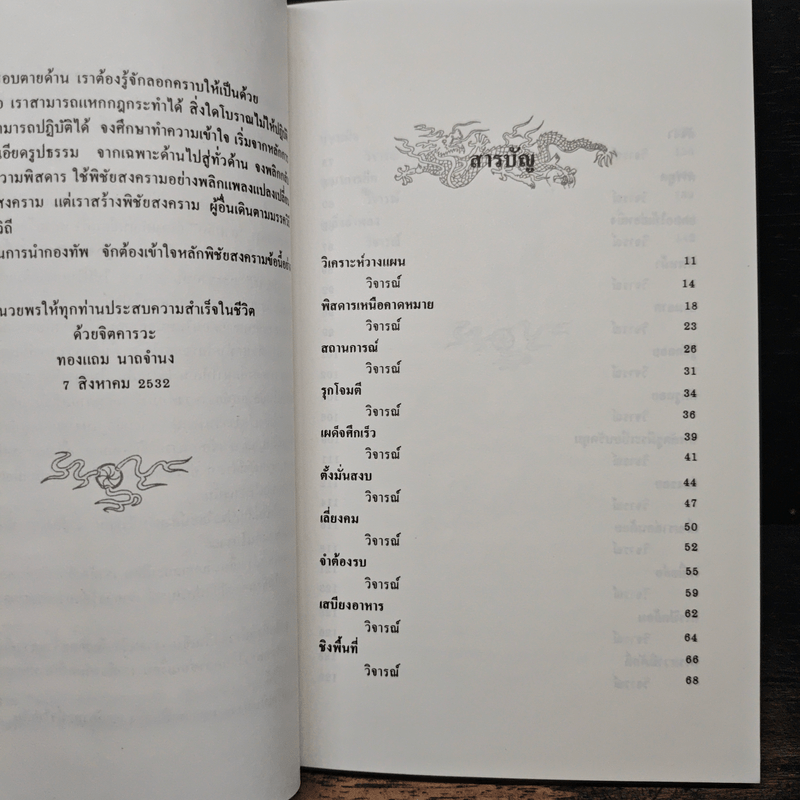 อบตายด้าน เราต้องรู้จักลอกคราบให้เป็นด้วย
เราสามารถแหกกฎกระทำได้ สิ่งใดโบราณไม่ให้ปฏิบัติ
มารถปฏิบัติได้ จงศึกษาทำความเข้าใจ เริ่มจากหลักการ
อียดรูปธรรม จากเฉพาะด้านไปสู่ทั่วด้าน จงพลิก
วามพิสดาร ใช้พิชัยสงครามอย่างพลิกแพลงแปลงเปลี่ยน
สงคราม แต่เราสร้างพิชัยสงคราม ผู้อื่นเดินตามมรรควิ
วิถี
นการนำกองทัพ จักต้องเข้าใจหลักพิชัยสงครามข้อนี้อย่าง
นวยพรให้ทุกท่านประสบความสำเร็จในชีวิต
ด้วยจิตคารวะ
ทองแถม นาถจำนง
7 สิงหาคม 2532
สารบัญ
วิเคราะห์วางแผน 11
วิจารณ์ 14
พิสดารเหนือคาดหมาย 18
วิจารณ์ 23
สถานการณ์ 26
วิจารณ์ 31
รุกโจมตี 34
วิจารณ์ 36
เผด็จศึกเร็ว 39
วิจารณ์ 41
ตั้งมั่นสงบ 44
วิจารณ์ 47
เลี่ยงคม 50
วิจารณ์ 52
จำต้องรบ 55
วิจารณ์ 59
เสบียงอาหาร 62
วิจารณ์ 64
ชิงพื้นที่ 66
วิจารณ์ 68